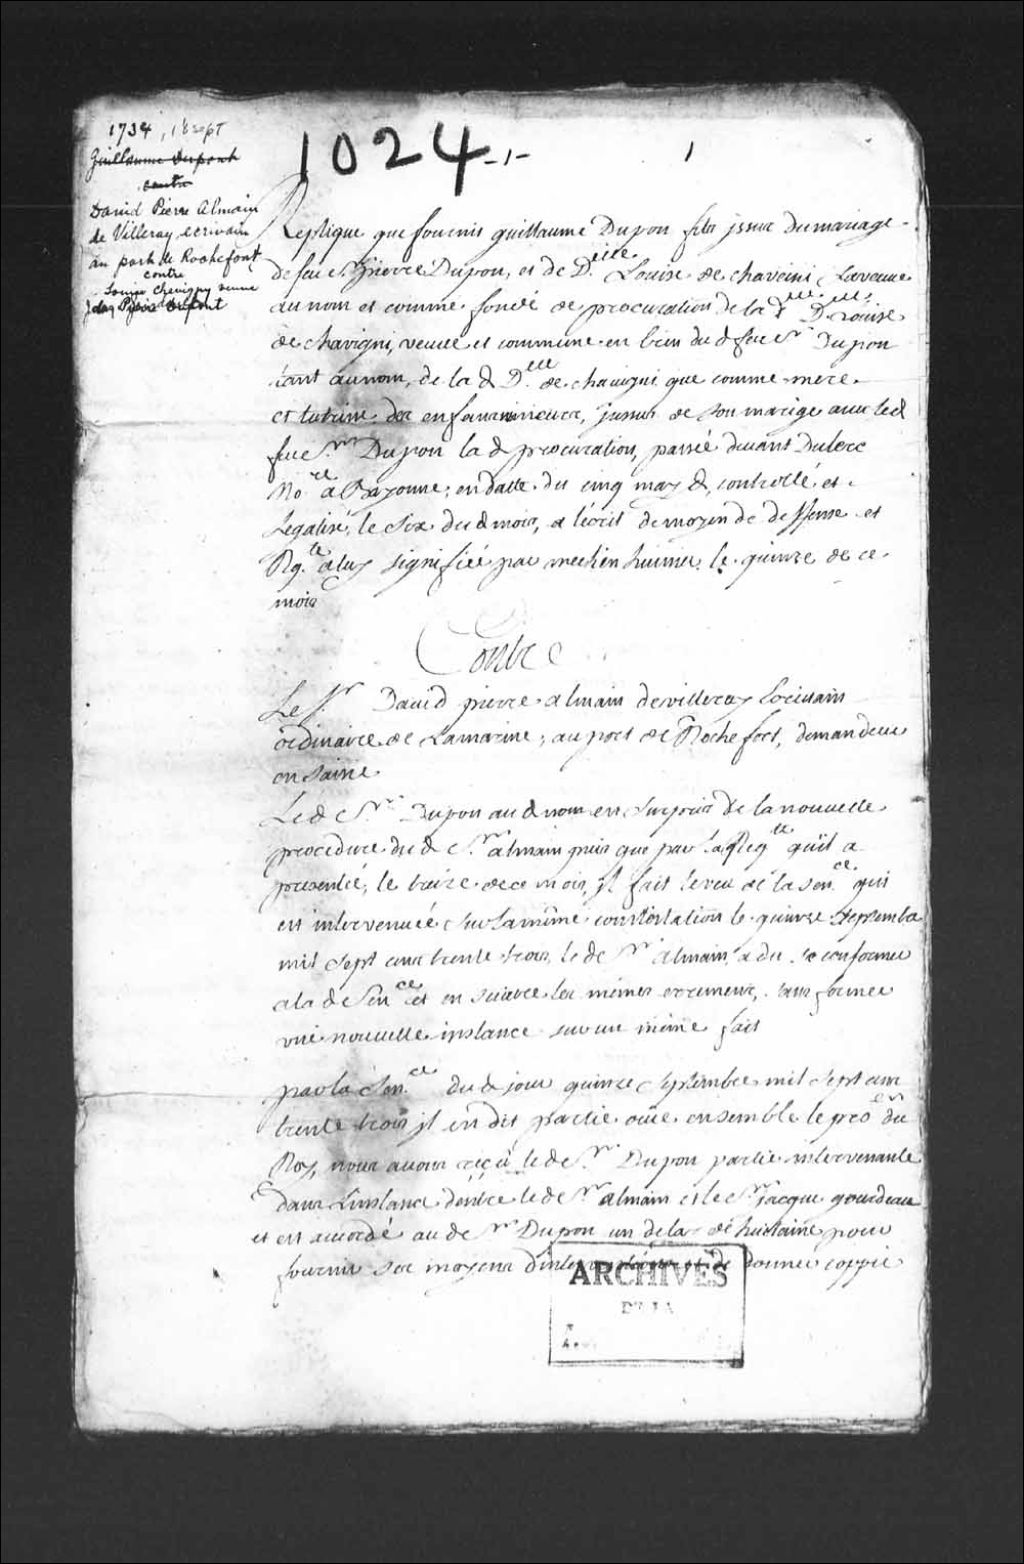 1734, 18 sept
Guillaume Dupont
contre
David Pierre Almain
de Villeray, ecrivain
au port de Rochefort
contre
Louise Chevigny veuve
Pierre Dupont
1024 -1-
1
Replique que fournis guillaume Dupon fils jssue du mariage
de feu Sr. pierre Dupon, et de Delle Louise de chavcini, Laveuue
au nom et comme fondé de procuration de la d. Delle Louise
de chavigni, veuue et commune en bien du d feu Sr Dupon
tant au nom, de la d Delle de chavigni que comme mere
et tutrice des enfans mineurs, jssus de son marige auec led
feu Sr. Dupon la d procuration, passée deuant Dulere
No.re a Bayonne, en datte du cinq may d., controllé et
Legalisé, le six du d mois, a lécrit de moyen de deffense et
Rq.te a luy signifiée par mechin huissier le quinze de ce
mois
Contre
Le Sr. David pierre almain devilleray Ecriuain
ordinaire de Lamarine, au port de Rochefort, demandeur
en saisie
Led Sr. Dupon au d nom en surpris de la nouuelle
procedure du d Sr. almain puis que par la Reqte quil a
presentée, le treize de ce mois, jl fait le veu de la sen.ce qui
est interuenuée sur la même contestation le quinze septembre
mil sept cens trente trois, le d Sr almain a du se conformer
a la d Sence et en suiure les mêmes erremens, sans former
une nouuelle instance sur un même fait
par la Sen.ce du d jour quinze Septembre mil sept cens
trente trois jl est dit partie ouïe ensemble le procr du
Roy, nous auons reçu le d Sr. Dupon partie interuenante
dans Linstance dentre le d Sr almain et le Sr jacque gourdeau
et est accordé au d Sr Dupon un delay de huitaine pour
fournir ses moyens dinteruention et de donner coppie
ARCHIVES
DE LA